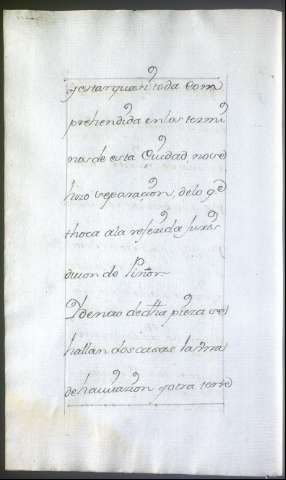 y estar quasi toda Com
prehendida en los termi
nos de esta Ciudad, no se
hizo separacion, de lo qe
thoca a la referida Juris
diccion de
Ydenao dedha pieza se
hallan dos casas la Prral
de havitazion y otra torre